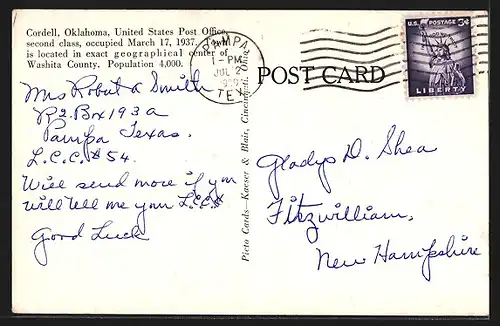 Cordell, Oklahoma, United States Post Office,
second class, occupied March 17, 1937. Town
is located in exact geographical center of
Washita County. Population 4,000.
PAMPA
1-PM
JUL
TEX
U.S. POSTAGE 3¢
LIBERTY
POST CARD
Mrs Robert A Smith
R2 Box 193A
Pampa Texas.
L.C.C. #54.
Will send more if you
will tell me your L.C.C.#
Good Luck
Picto Cards—Kaeser & Blair, Cincinnati, Ohio
Gladys D. Shea
Fitzwilliam,
New Hampshire